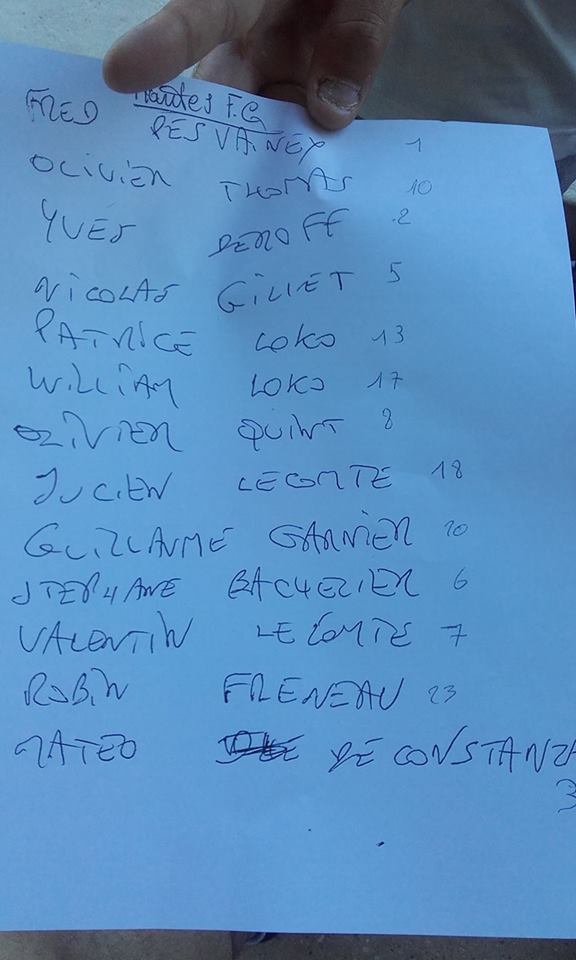 Nantes F.G
FRED RESVAINEX 1
OLIVIER THOMAS 10
YVES DEROFF 2
NICOLAS GILLET 5
PATRICE LOKO 13
WILLIAM LOKO 17
OLIVIER QUINT 8
JULIEN LECOMTE 18
GUILLAUME GARNIER 20
STEPHANE BACHELIER 6
VALENTIN LECOMTE 7
ROBIN FRENEAU 23
MATEO DE CONSTANZA
3